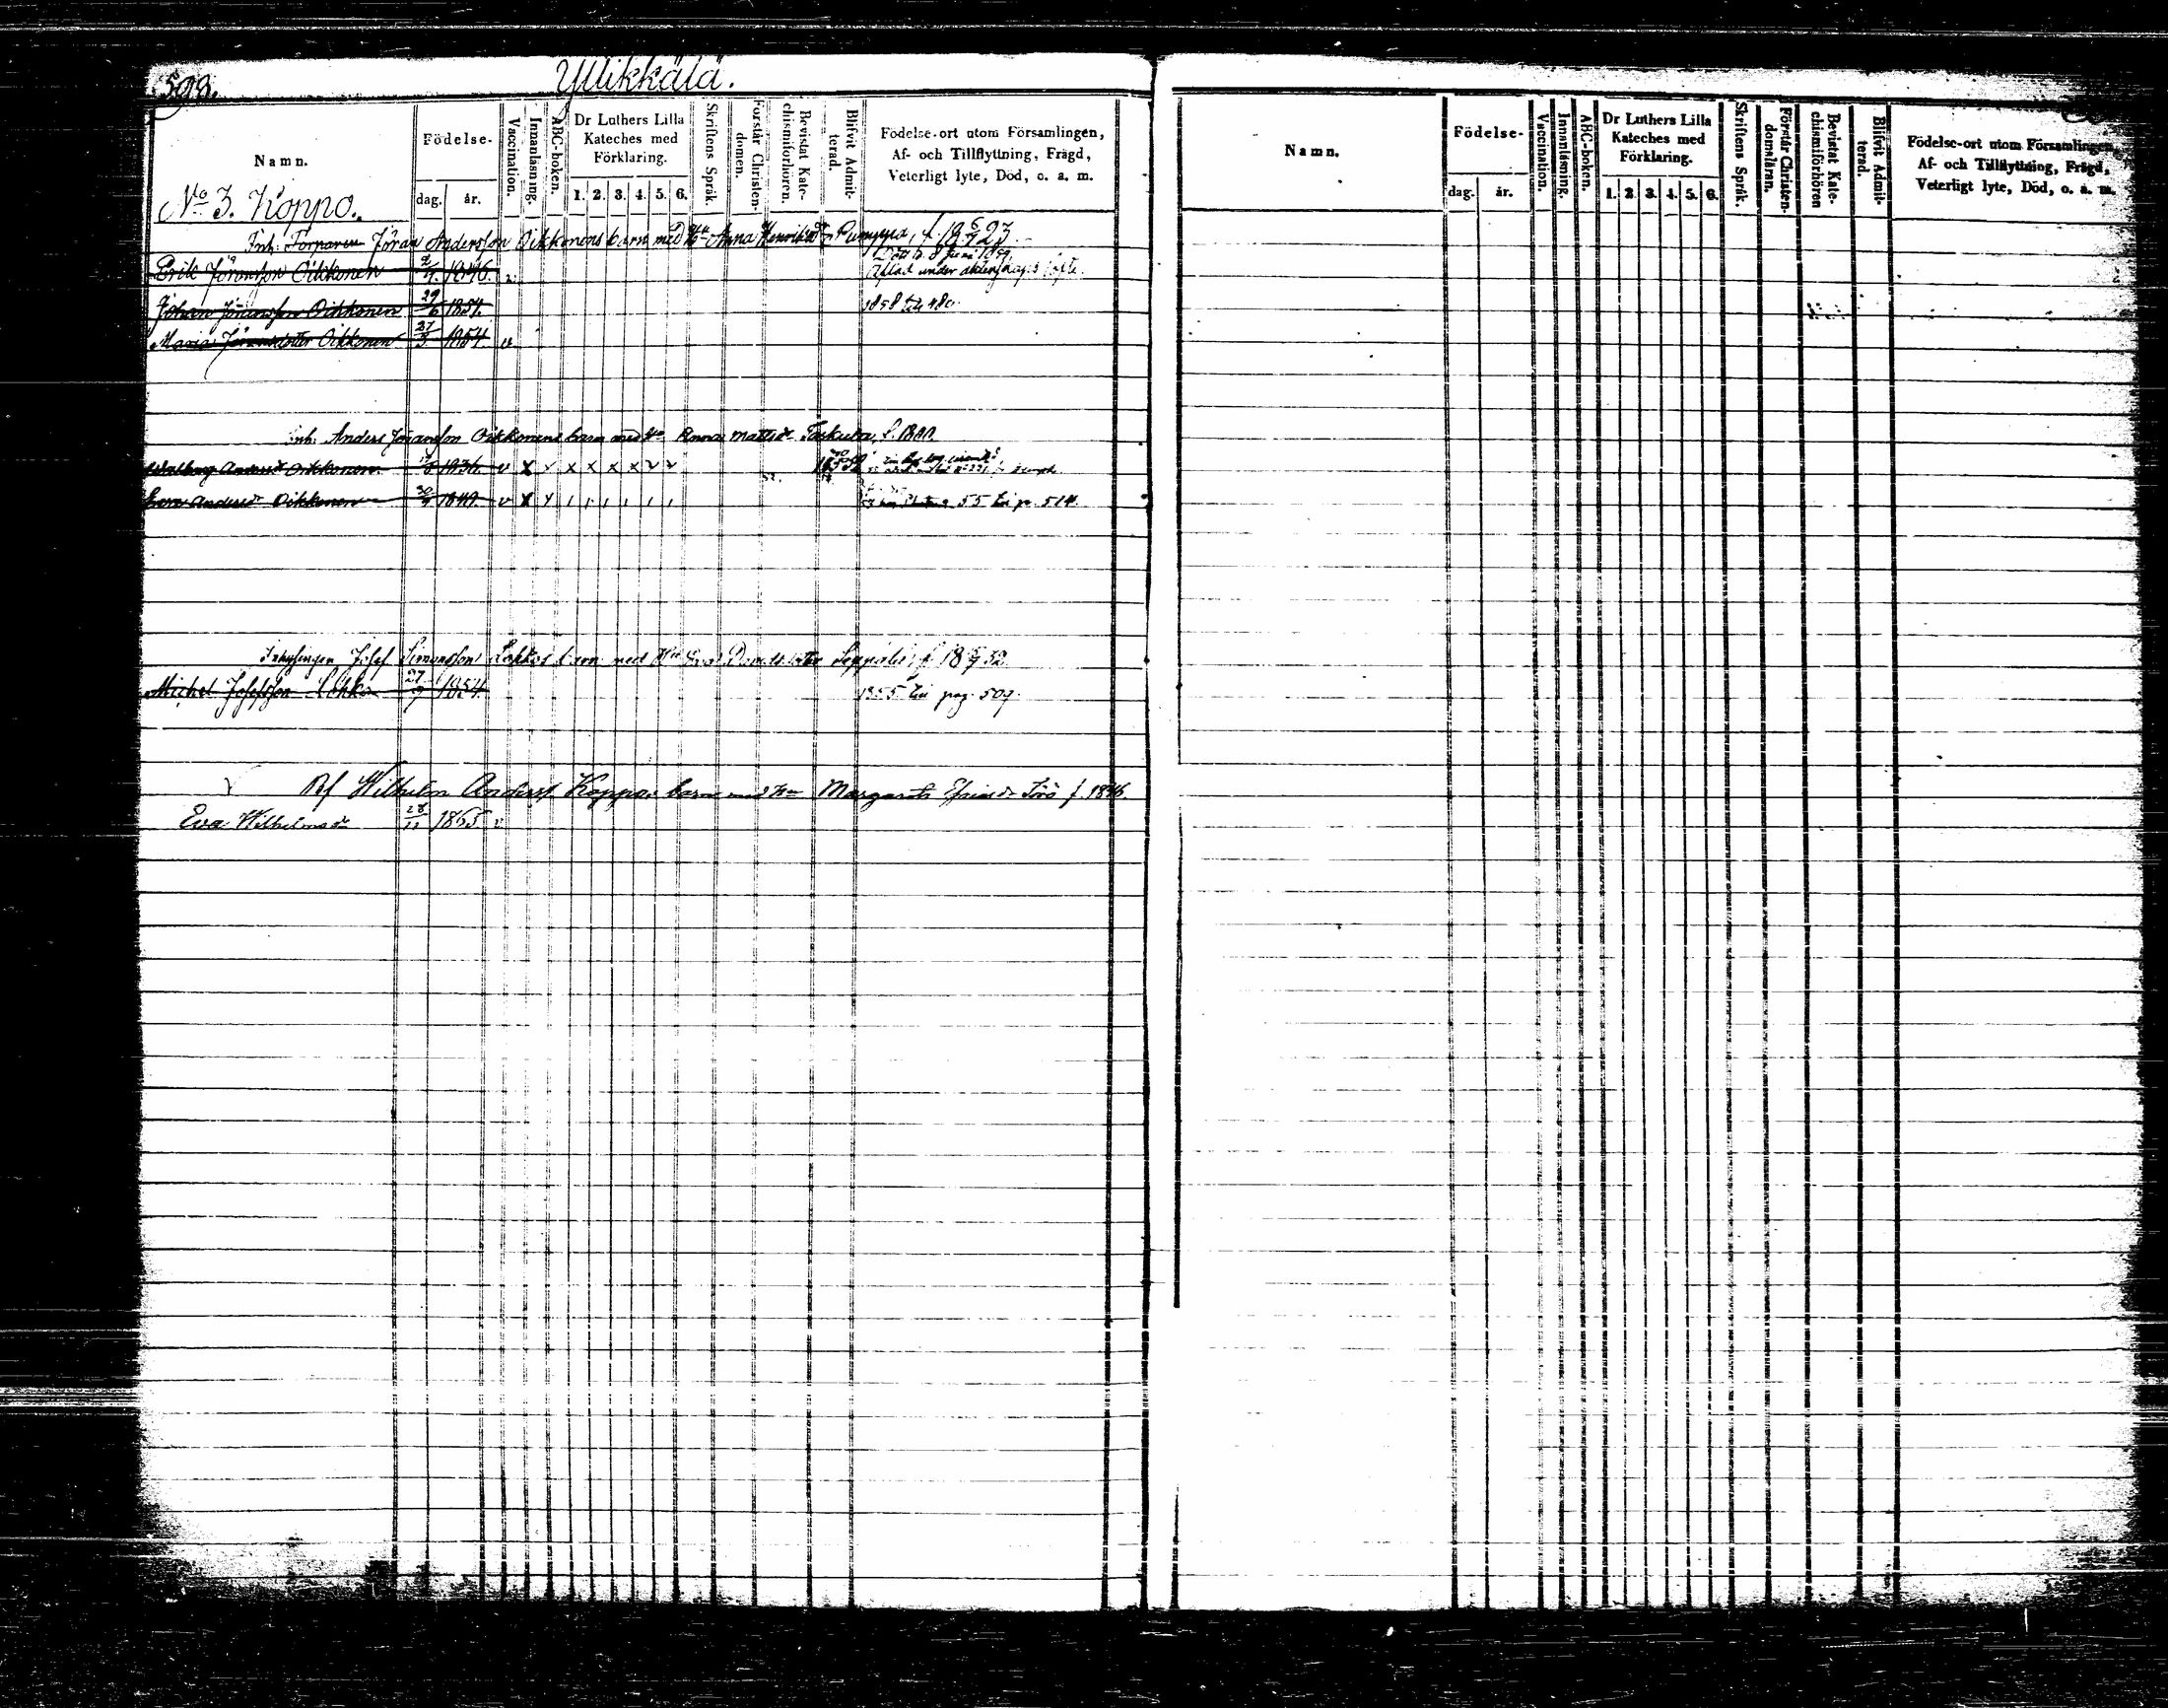 598.
Yllikkälä.
Namn.
Födelse-
dag. år.
Vaccination.
Innanläsning.
ABC-boken.
Dr Luthers Lilla
Kateches med
Förklaring.
1. 2. 3. 4. 5. 6.
Skriftens Språk.
Förstår Christen-
domen.
Bevistat Kate-
chismiförhören.
Blifvit Admit-
terad.
Födelse-ort utom Församlingen,
Af- och Tillflyttning, Frägd,
Veterligt lyte, Död, o. a. m.
No 3. Koppo.
Inh. Torparen Jöran Andersson Oikkonens barn med Hu Anna Henriksdr Pumppa, f. 18 5/7 23
Död d. 8 Juni 1859
Erik Jöransson Oikkonen 2/4 1846. v. Aflad under äktenskaps löfte.
Johan Jöransson Oikkonen 29/6 1851. 1858 till 480.
Maria Jöransdotter Oikkonen 27/3 1854. v
Inh. Anders Jöransson Oikkonens barn med Hu Anna Mattsdr Taskula, f. 1800.
Walborg Andersdr Oikkonen 1836. v x v x x x x v v
Andersdr Oikkonen 1840. v x v 55 till p. 514.
Inhysingen Josef Simonsson Lohkos barn med Hu Eva Davidsdotter Seppälä, f. 18 32.
Michel Josefsson Lohko 27/9 1854. 1855 till pag. 509.
v Bf Wilhelm Anderss. Koppos barn med Hu Margareta Törö f. 1846.
Eva Wilhelmsdr 28/11 1865 v
Namn.
Födelse-
dag. år.
Vaccination.
Innanläsning.
ABC-boken.
Dr Luthers Lilla
Kateches med
Förklaring.
1. 2. 3. 4. 5. 6.
Skriftens Språk.
Förstår Christen-
domsläran.
Bevistat Kate-
chismiförhören
Blifvit Admit-
terad.
Födelse-ort utom Församlingen,
Af- och Tillflyttning, Frägd,
Veterligt lyte, Död, o. a. m.